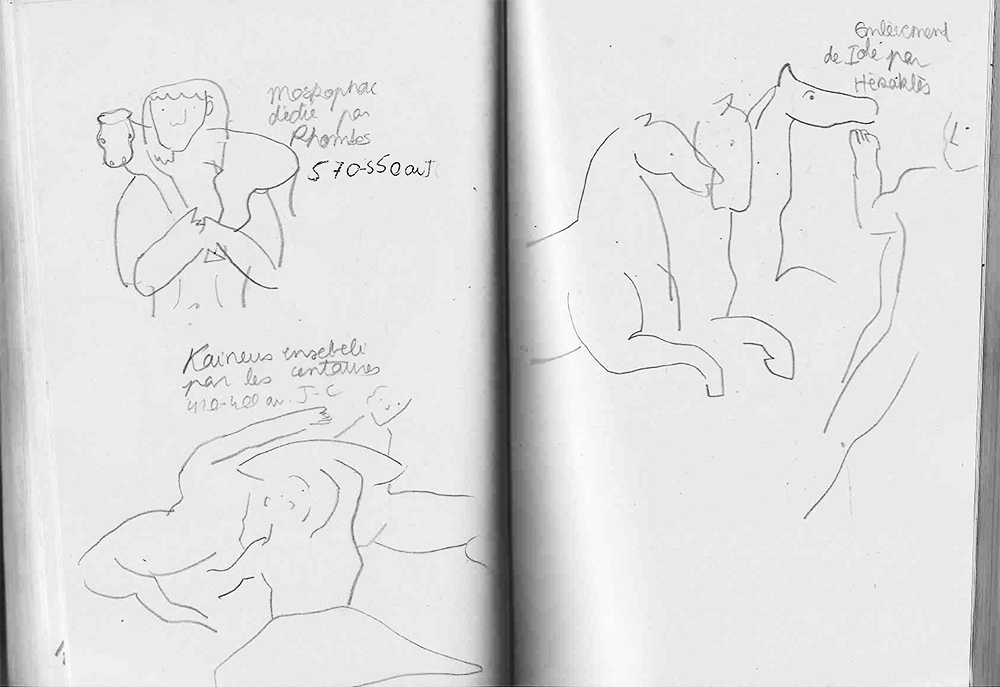 Moskophac
dédié par
Rhombos
570-550 av J
Kaineus ensebeli
par les centaures
410-400 av. J-C
Enlèvement
de Iole par
Héraklès